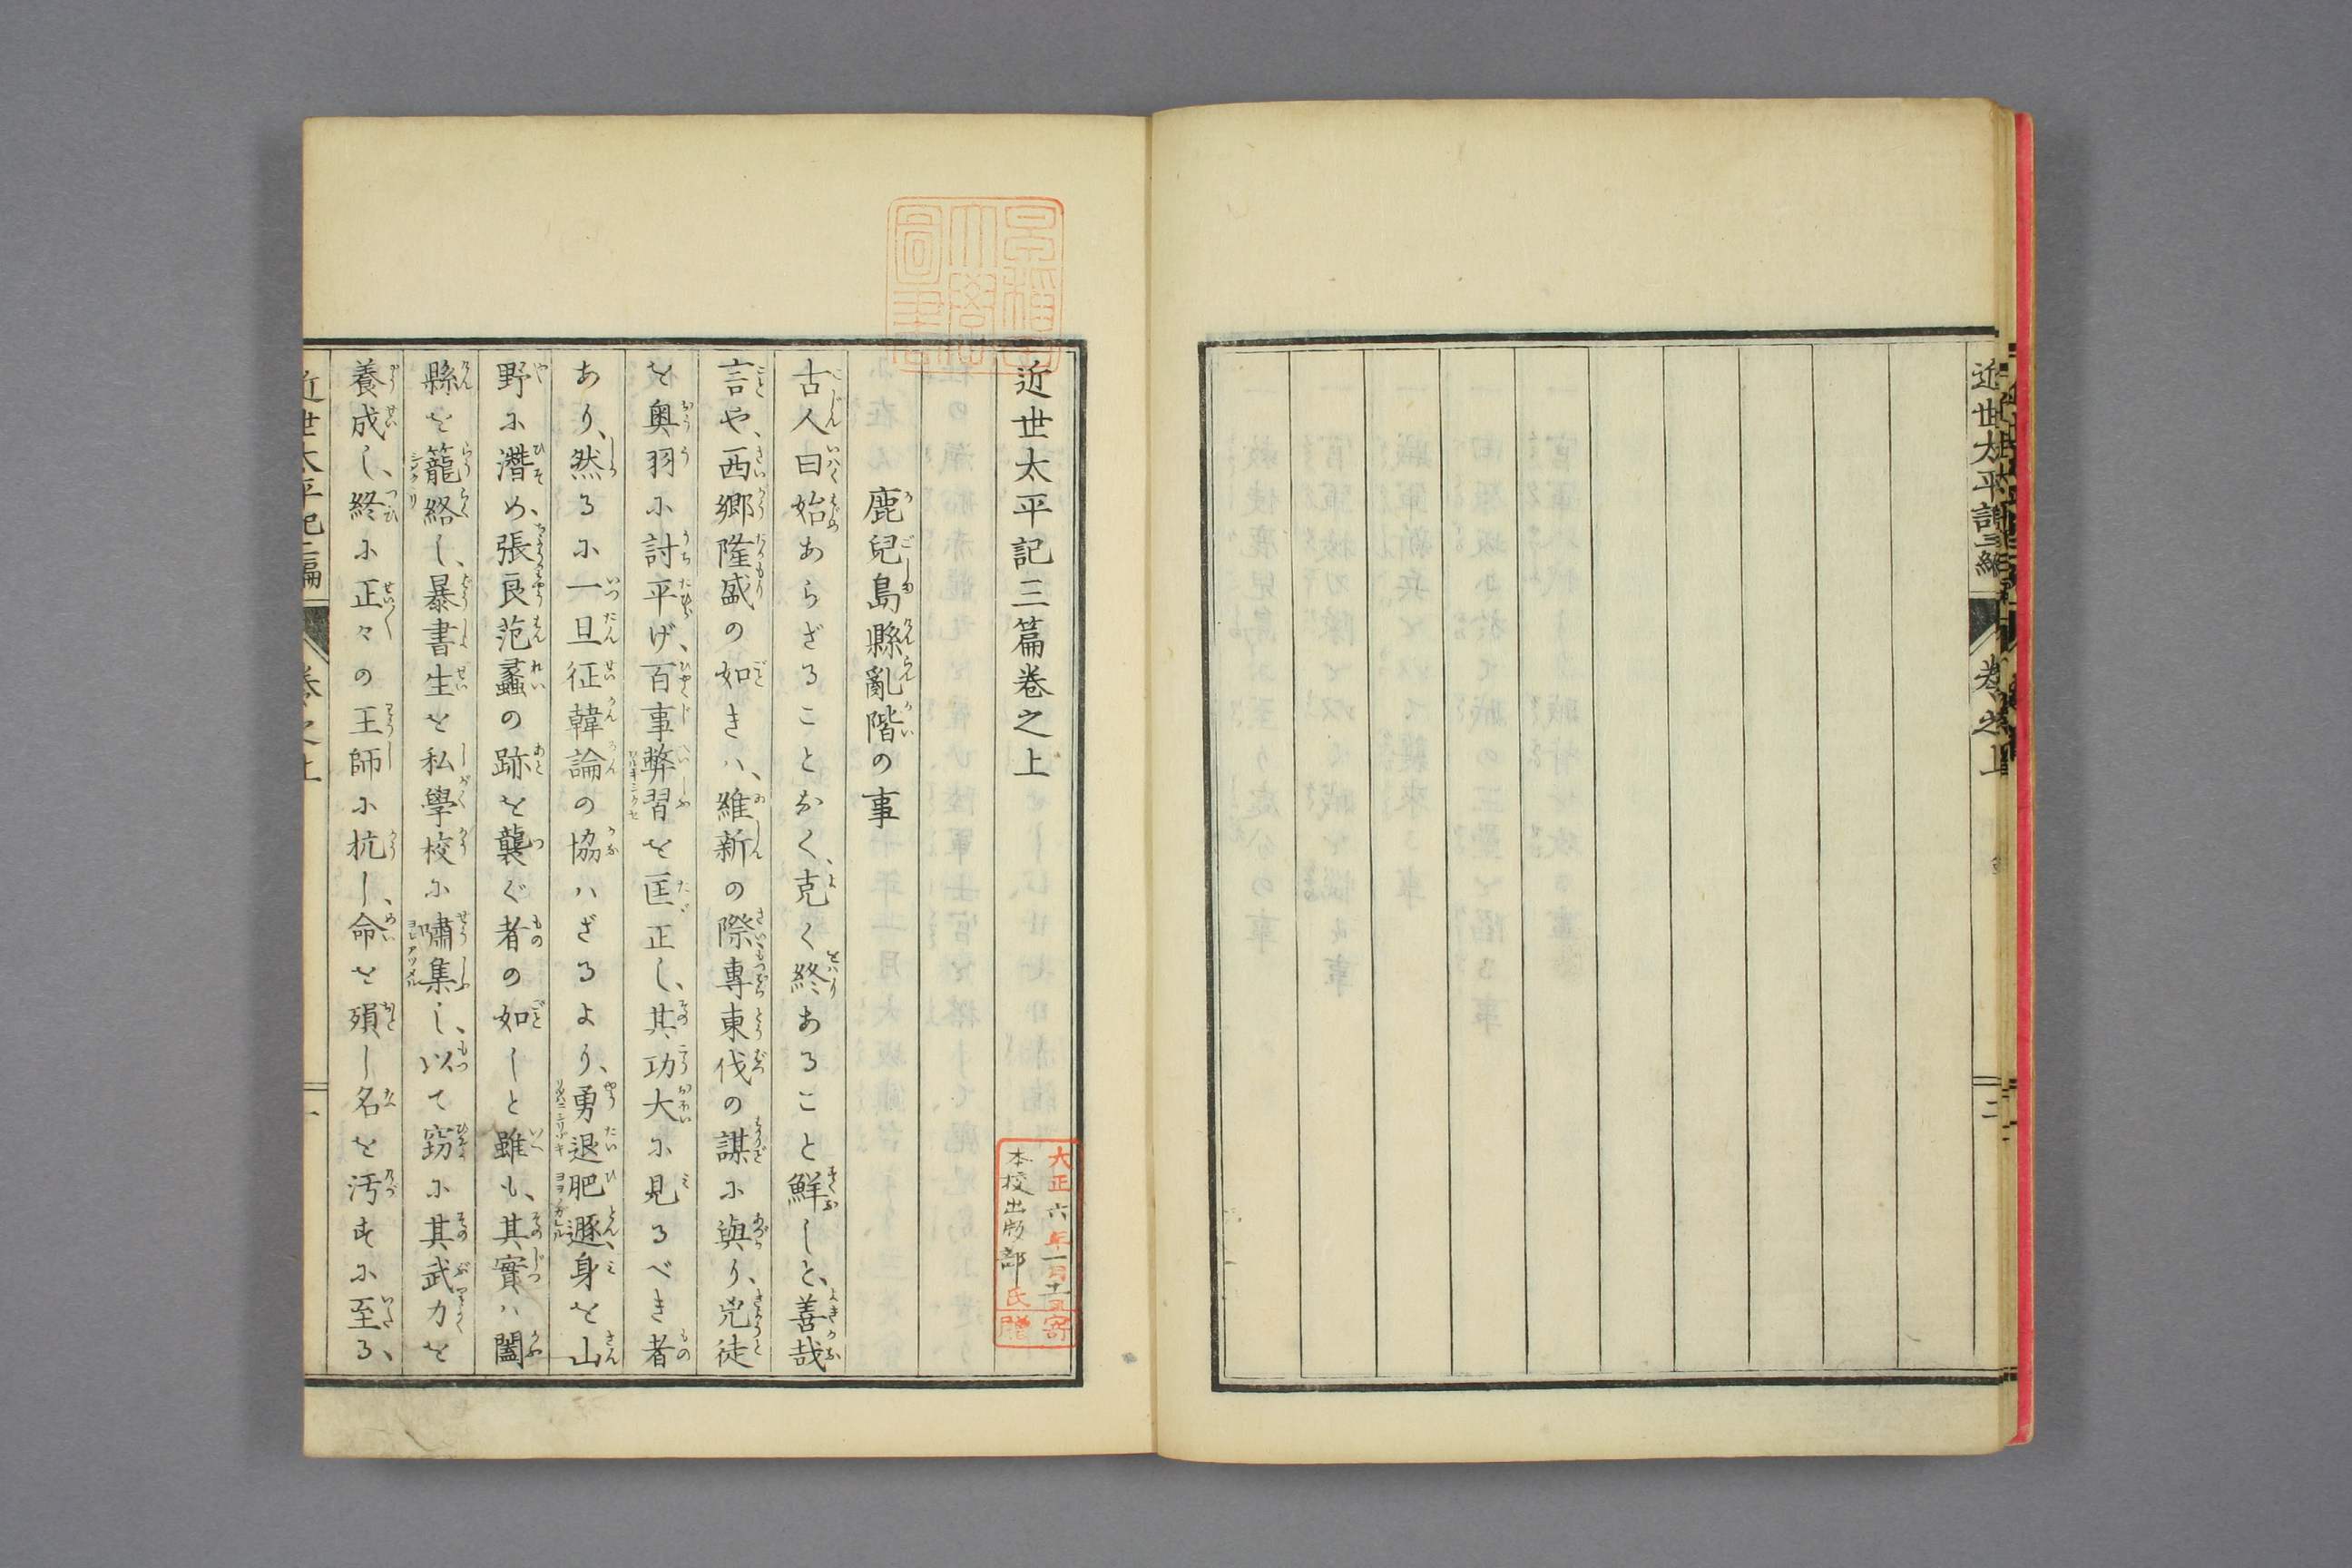 近世太平記三編
卷之上
二
近世太平記三篇卷之上
鹿兒島縣亂階の事
古人曰始あらざることなく、克く終あること鮮しと、善哉
言や、西郷隆盛の如きハ、維新の際專東伐の謀に與り、兇徒
を奥羽に討平げ、百事弊習を匡正し、其功大に見るべき者
あり、然るに一旦征韓論の協ハざるより、勇退肥遯、身を山
野に潜め、張良范蠡の跡を襲ぐ者の如しと雖も、其實ハ闔
縣を籠絡し、暴書生を私學校に嘯集し、以て窃に其武力を
養成し、終に正々の王師に抗し、命を殞し名を汚すに至る、
近世太平記三編
卷之上
一
大正六年一月十五寄
本校出版部氏贈